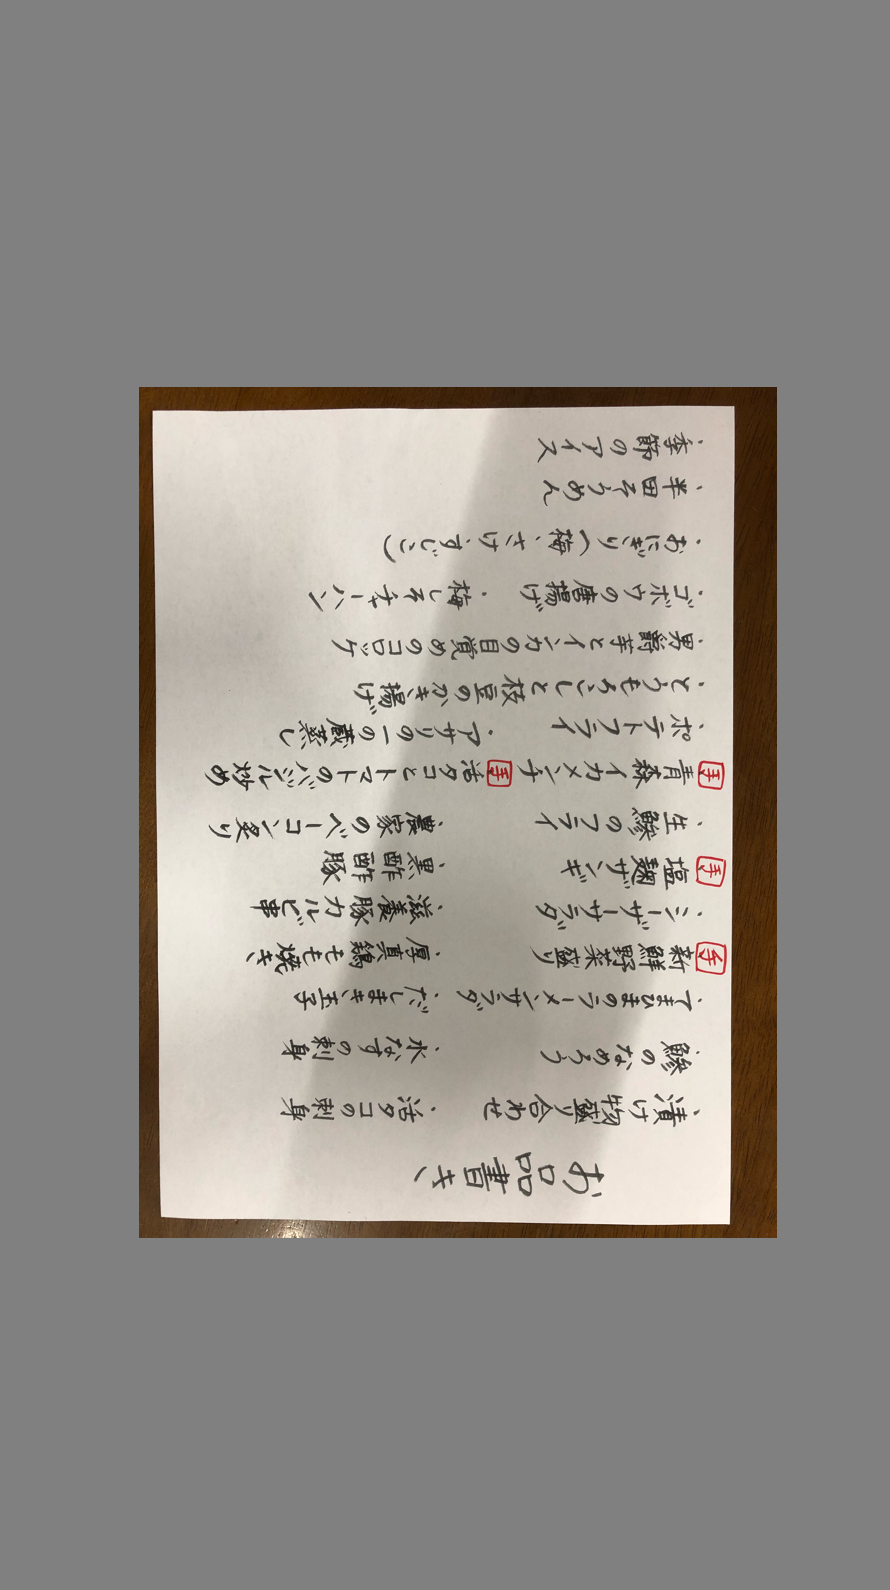 お品書き
・漬け物盛り合わせ ・活タコの刺身
・鯵のなめろう ・水なすの刺身
・てまひまのラーメンサラダ ・だしまき玉子
手 新鮮野菜盛り ・厚真鶏もも焼き
・シーザーサラダ ・滋養豚カルビ串
手 塩麹ザンギ ・黒酢酢豚
・生鯵のフライ ・農家のベーコン炙り
手 青森イカメンチ 手 活タコとトマトのバジル炒め
・ポテトフライ ・アサリの一の蔵蒸し
・とうもろこしと枝豆のかき揚げ
・男爵芋とインカの目覚めのコロッケ
・ゴボウの唐揚げ ・梅しそチャーハン
・おにぎり(梅、さけ、すじこ)
・半田そうめん
・季節のアイス